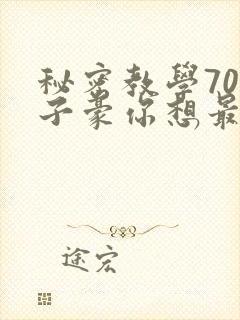 秘密教學70
子豪你想最
途宏